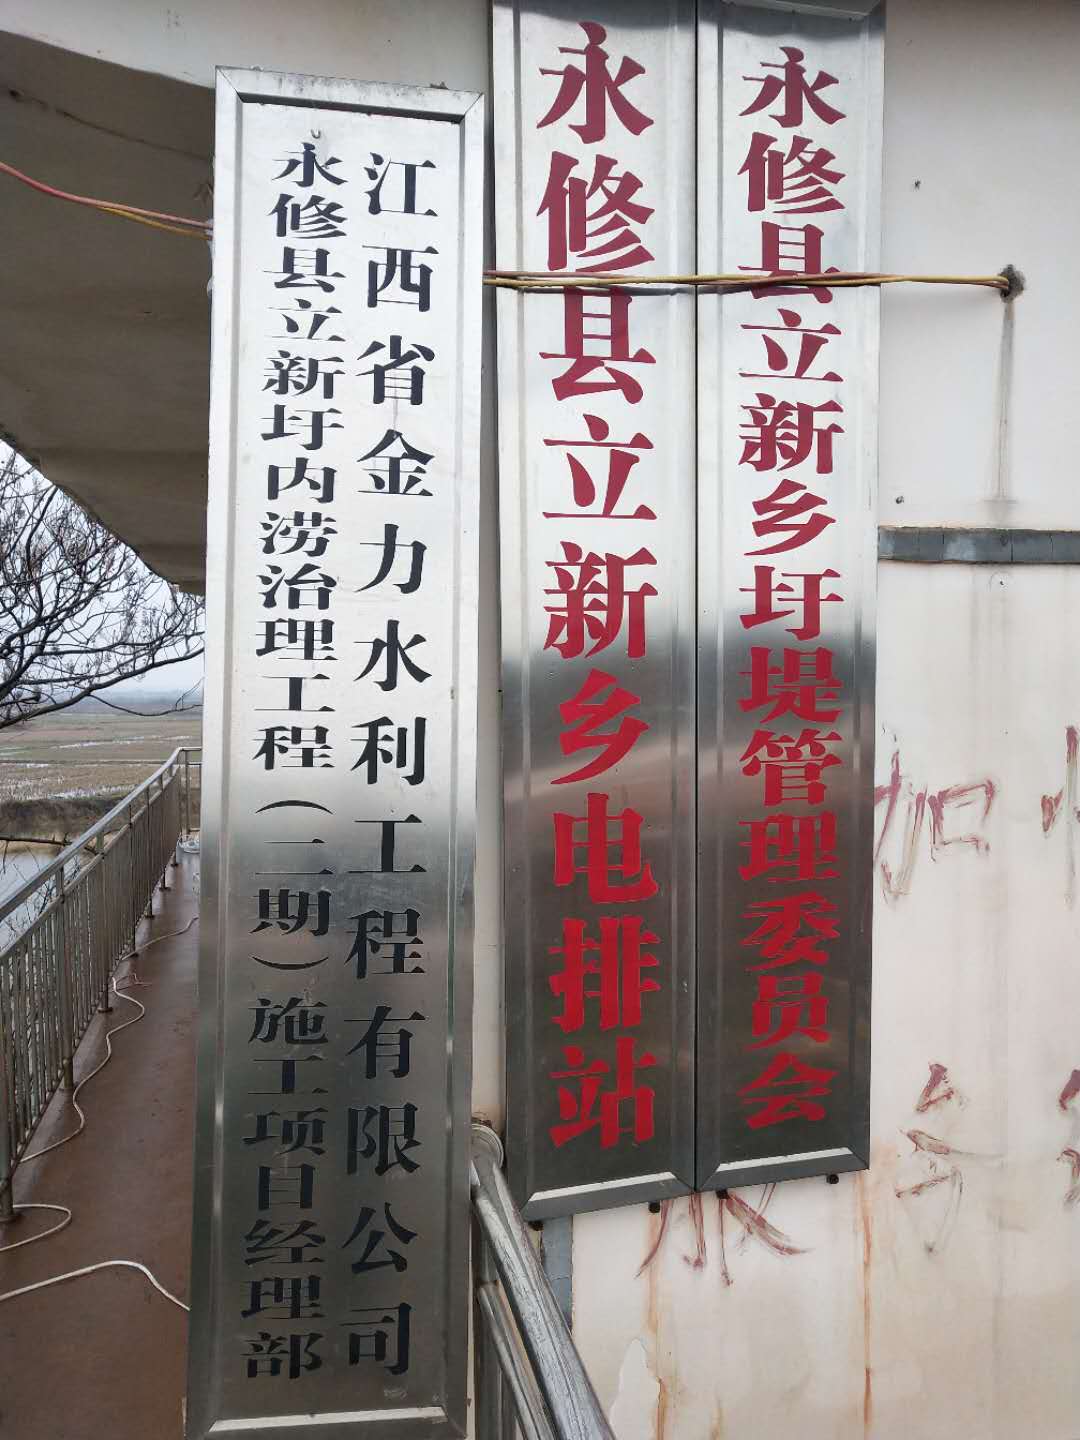 江西省金力水利工程有限公司
永修县立新圩内涝治理工程（二期）施工项目经理部
永修县立新乡电排站
永修县立新乡圩堤管理委员会
加